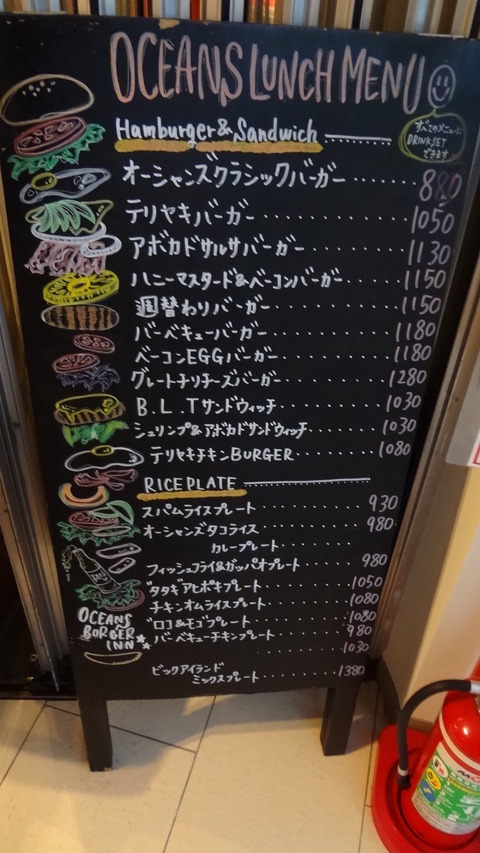 OCEANS LUNCH MENU
すべてのメニューに
DRINK SET
できます
Hamburger & Sandwich
オーシャンズクラシックバーガー........880
テリヤキバーガー........1050
アボカドサルサバーガー........1130
ハニーマスタード&ベーコンバーガー........1150
週替わりバーガー........1150
バーベキューバーガー........1180
ベーコンEGGバーガー........1180
グレートチリチーズバーガー........1280
B.L.Tサンドウィッチ........1030
シュリンプ&アボカドサンドウィッチ........1030
テリヤキチキンBURGER........1080
RICE PLATE
スパムライスプレート........930
オーシャンズタコライス........980
カレープレート........
フィッシュフライ&ガッパオプレート........980
タタギアヒポキプレート........1050
チキンオムライスプレート........1080
ロコ&モコプレート........1080
バーベキューチキンプレート........980
1030
ビックアイランド
ミックスプレート........1380
OCEANS
BURGER
INN